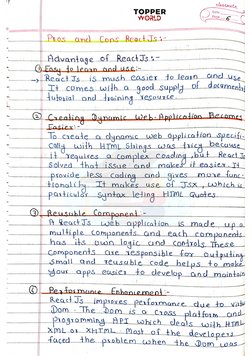 TOPPER
WORLD
classmate
Page 6
Pros and Cons ReactJs:-
Advantage of ReactJs :-
① Easy to learn and use :-
→ ReactJs is much easier to learn and use.
It comes with a good supply of documental
tutorial and training resource.
② Creating Dynamic Web-Application Becomes
Easier:-
To create a dynamic web application specifi-
cally with HTML Strings was tricy because
it requires a complex coading, but React Js
solved that issue and makes it easier. It
provide less coding and gives more func-
tionality. It makes use of JSX, which is
particular syntax leting HTML Quotes
③ Reusable Component :-
A ReactJs web application is made up o
multiple components and each components
has its own logic and controls. These
components are responsible for outputing
small and reusable code helps to make
your apps easier to develop and maintain
④ Performance Enhancement -
ReactJs improves performance due to virtu
Dom. The Dom is a cross platform and
Programming API which deals with HTML
XML or XHTML. Most of the developers
faced the problem when the Dom was